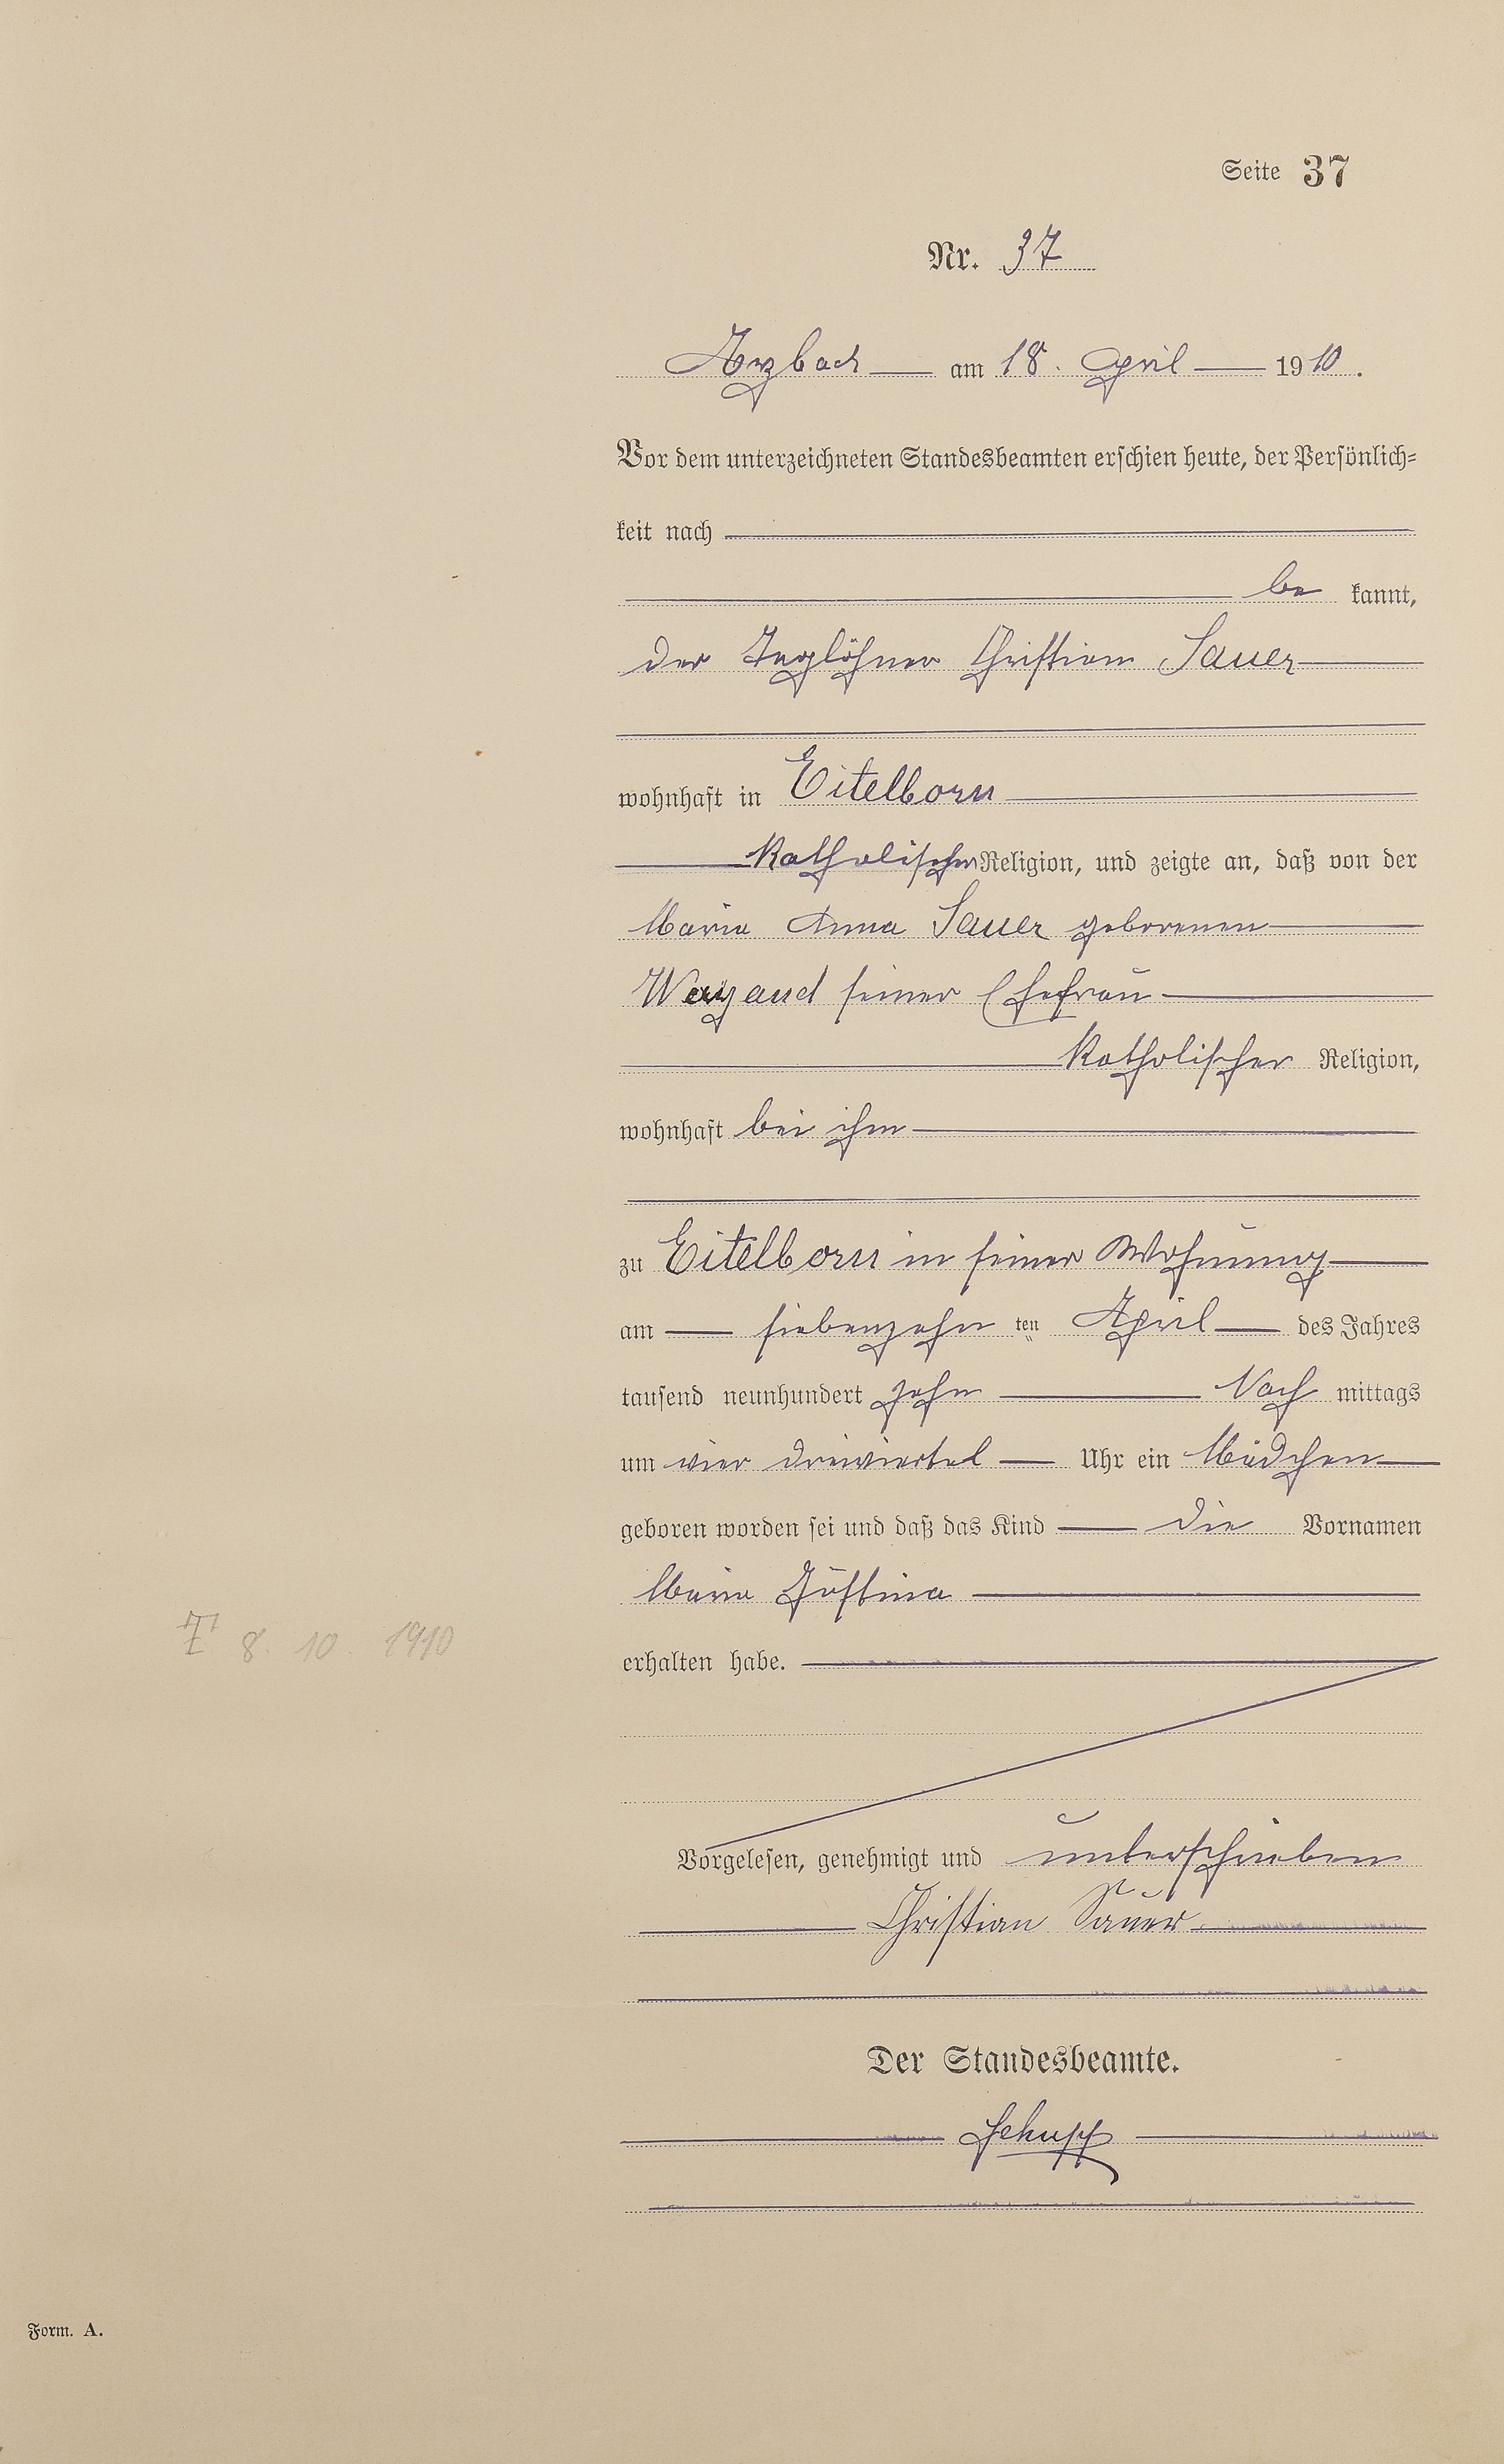 Seite 37
Nr. 37
Arzbach am 18. April 1910.
Vor dem unterzeichneten Standesbeamten erschien heute, der Persönlich-
keit nach
be kannt,
der Taglöhner Christian Sauer
wohnhaft in Eitelborn
katholischer Religion, und zeigte an, daß von der
Maria Anna Sauer geborenen
Weyand seiner Ehefrau
katholischer Religion,
wohnhaft bei ihm
zu Eitelborn in seiner Wohnung
am siebenzehn ten April des Jahres
tausend neunhundert zehn Nach mittags
um vier dreiviertel Uhr ein Mädchen
geboren worden sei und daß das Kind die Vornamen
Maria Justina
† 8. 10. 1910
erhalten habe.
Vorgelesen, genehmigt und unterschrieben
Christian Sauer
Der Standesbeamte.
Schupp
Form. A.